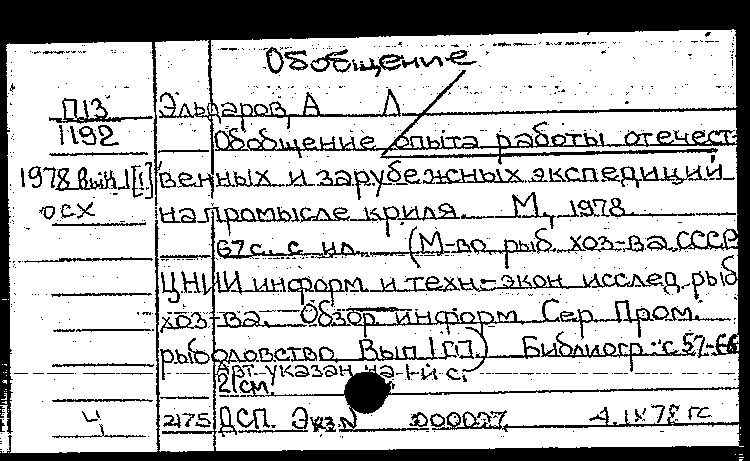 Обобщение
П13 Эльдаров, А Л
1192 Обобщение опыта работы отечест-
1978 Вып 1[1] венных и зарубежных экспедиций
ОСХ на промысле криля. М., 1978.
67 с. с ил. (М-во рыб. хоз-ва СССР
ЦНИИ информ и техн-экон исслед. рыб
хоз-ва. Обзор информ. Сер Пром.
рыболовство. Вып 1 Библиогр.: с 57-66
Авт указан на 1-й с.
21 см.
Ч 2175 ДСП. Экз N 000077 4.IX 78 гс